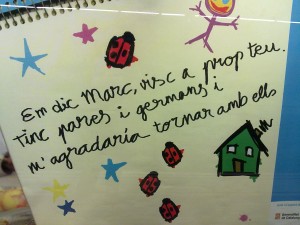 Em dic Marc, visc a prop teu.
Tinc pares i germans i
m'agradaria tornar amb ells